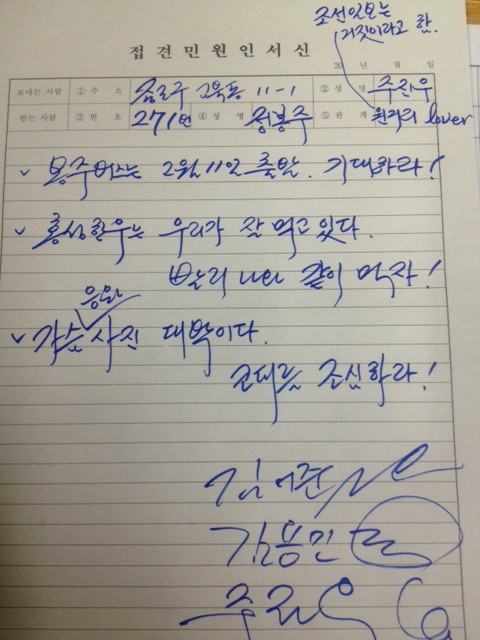 조선일보는
거짓이라고 함.
접견민원인서신
20 년 월 일
보내는 사람 ① 주 소 종로구 교북동 11-1 ② 성 명 주진우
받는 사람 ③ 번 호 271번 ④ 성 명 정봉주 ⑤ 관 계 원거리 lover
✓ 봉주버스는 2월 11일 출발. 기대하라!
✓ 홍성한우는 우리가 잘 먹고 있다.
빨리 나와 같이 먹자!
✓ 가슴 응원 사진 대박이다.
코피를 조심하라!
김어준
김용민
주진우